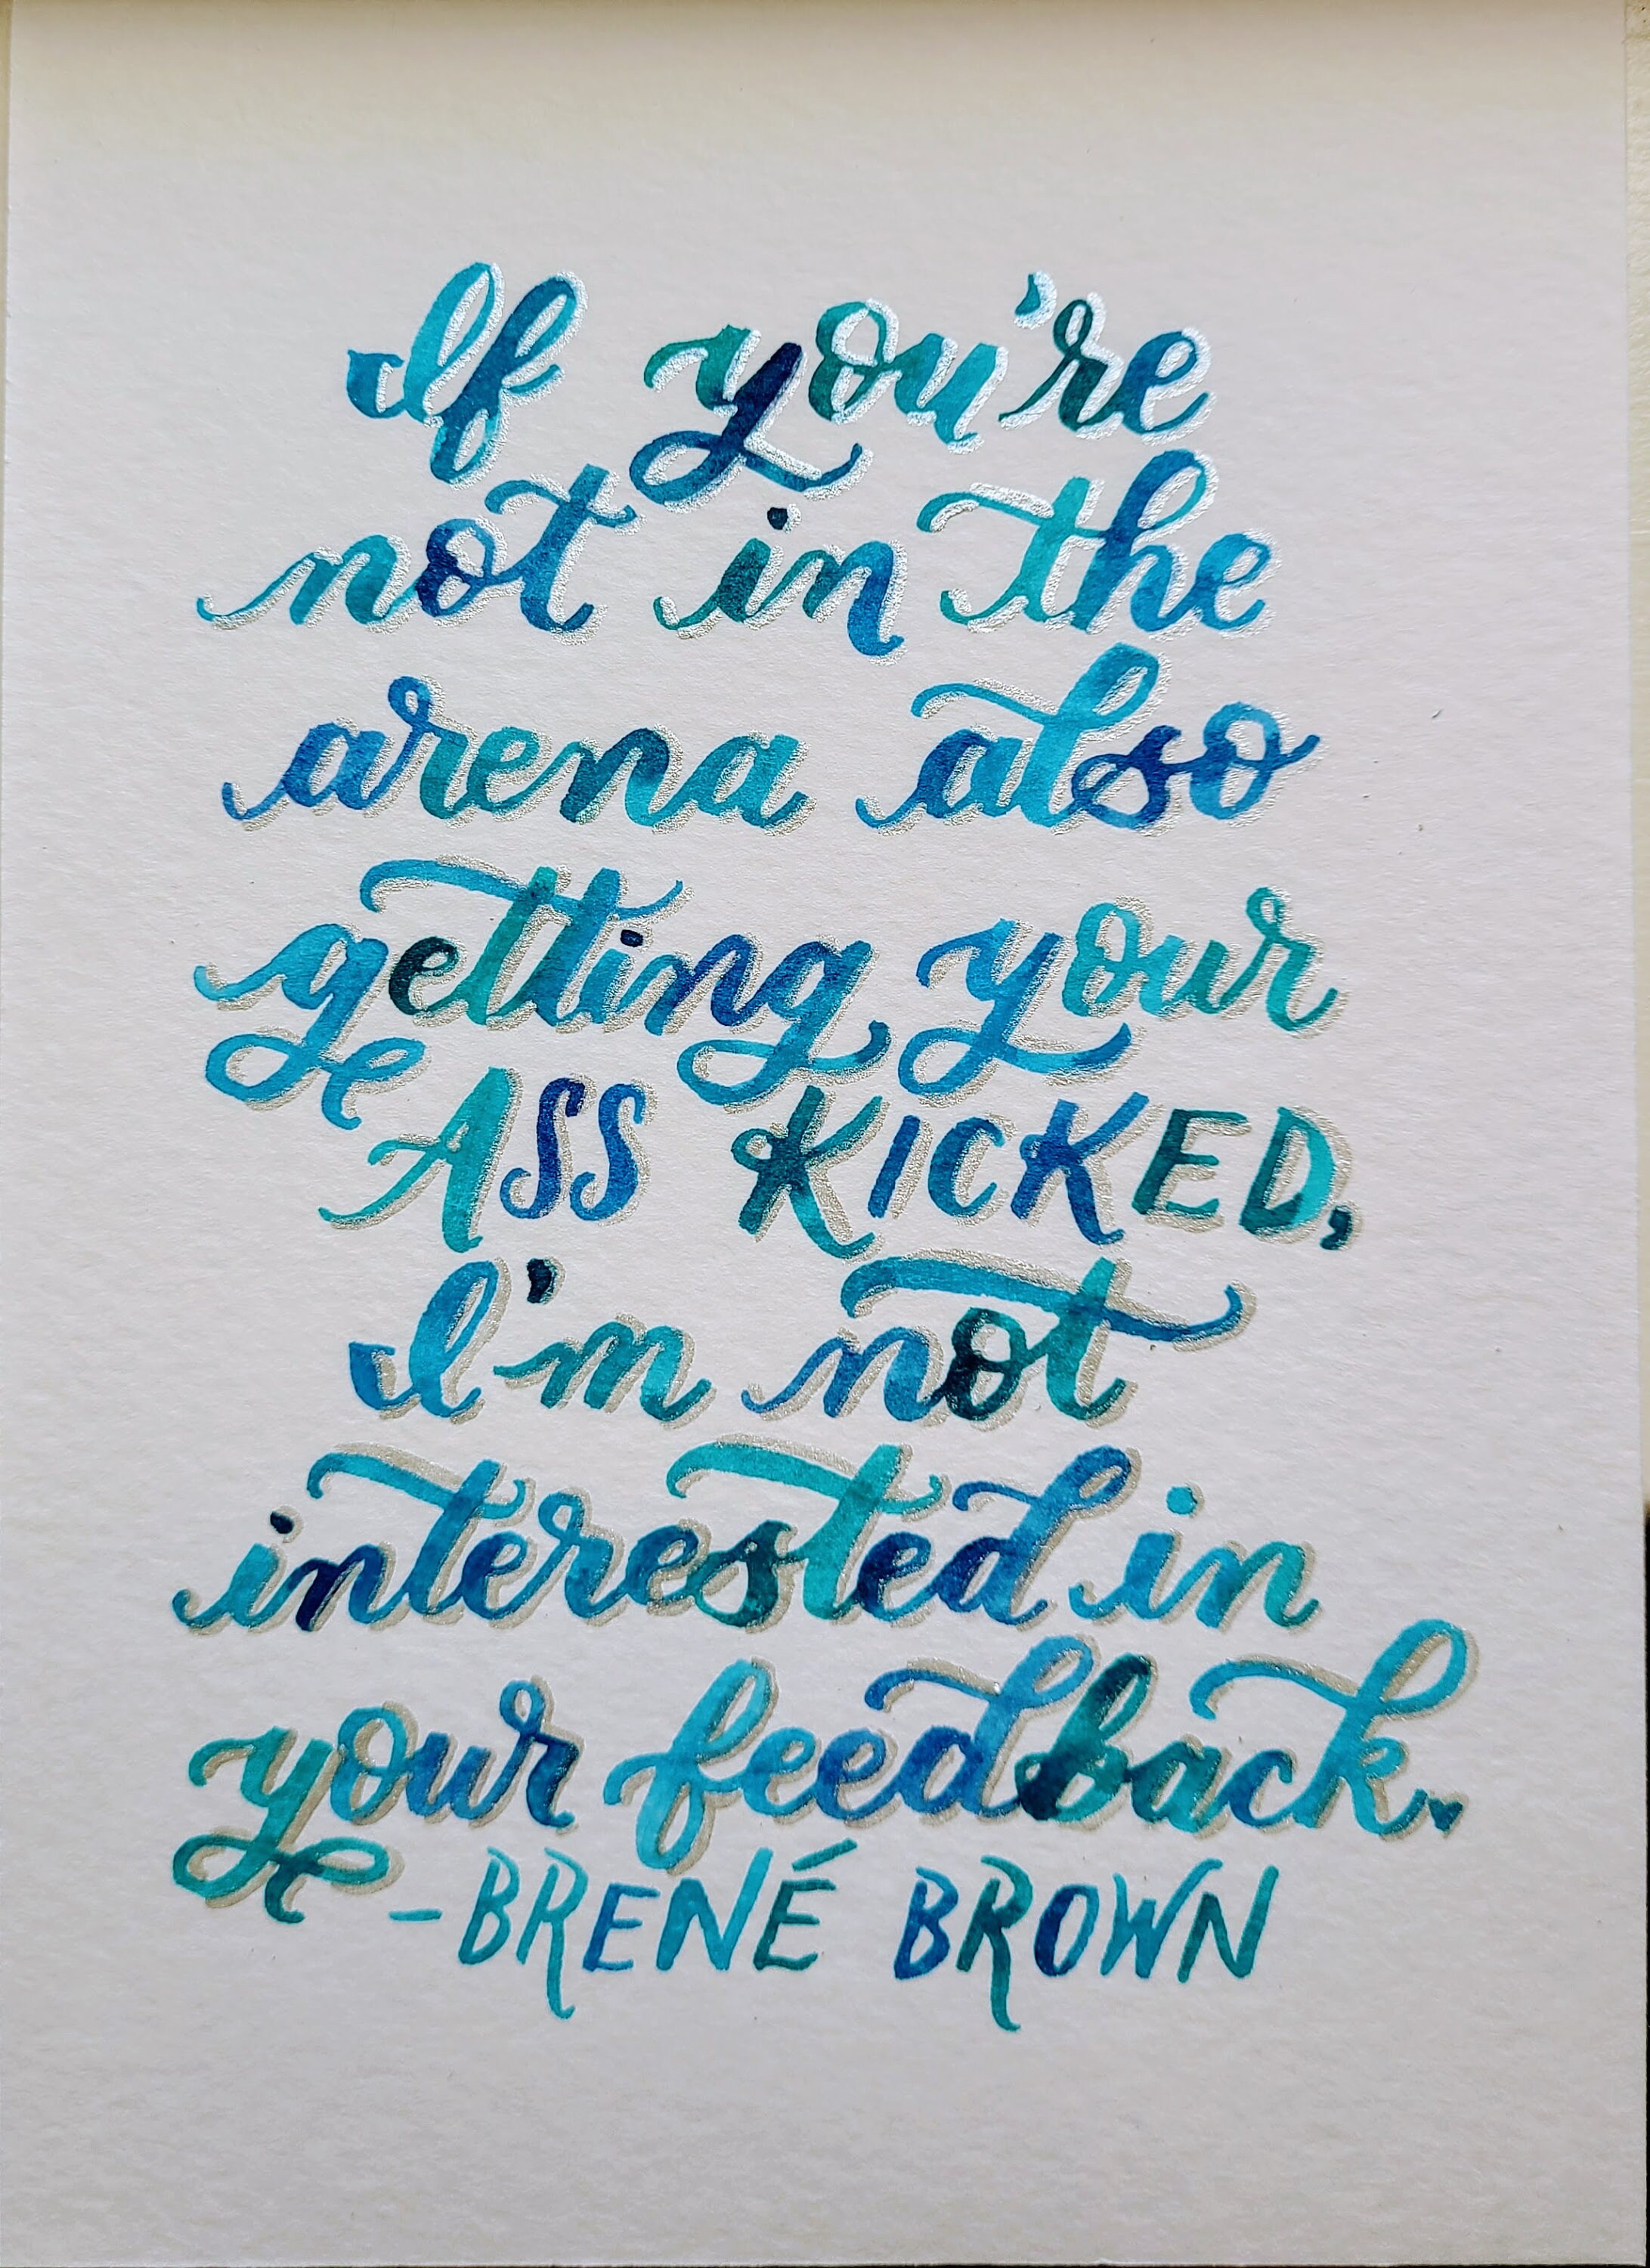 If you're
not in the
arena also
getting your
ASS KICKED,
I'm not
interested in
your feedback.
-BRENÉ BROWN